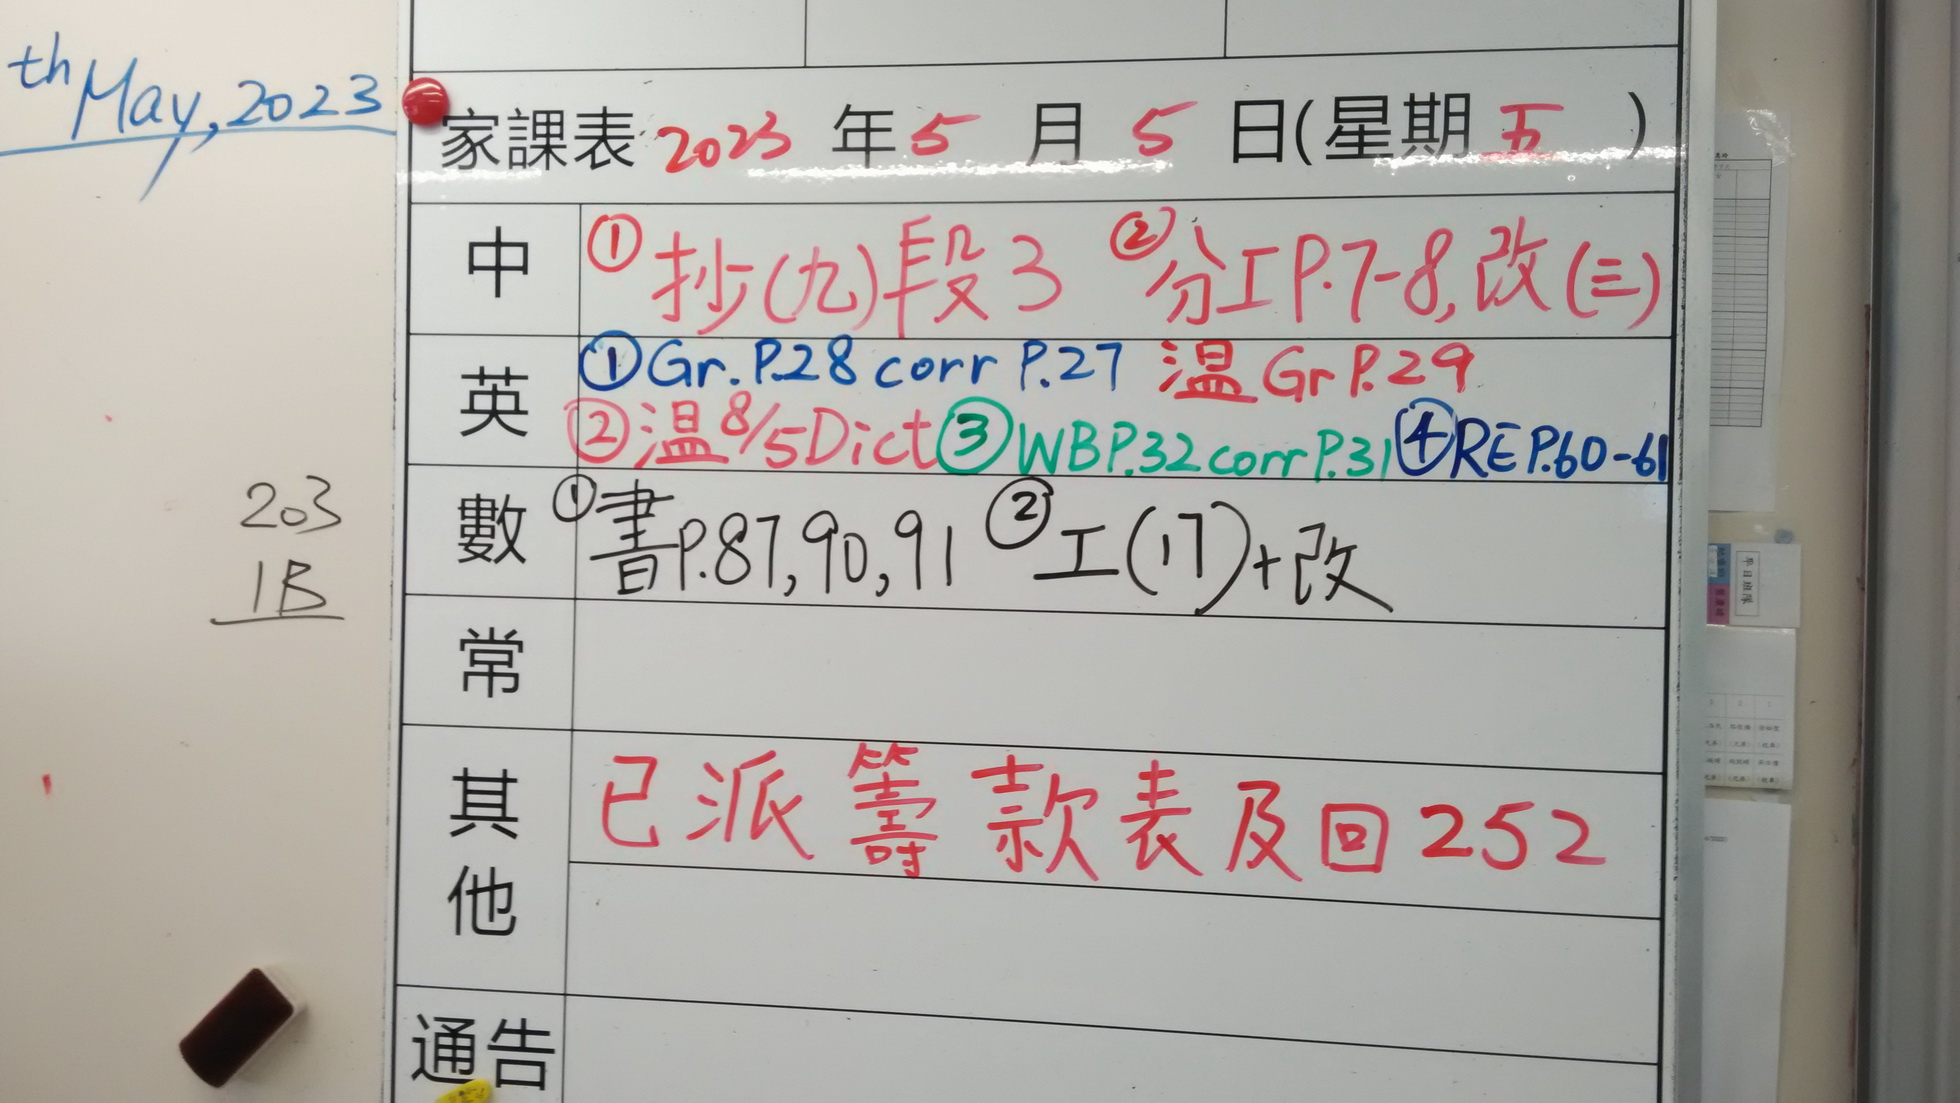 th May, 2023
家課表 2023 年 5 月 5 日(星期 五 )
中 ① 抄(九)段3 ② 分工P.7-8, 改(三)
英 ① Gr. P.28 corr P.27 温 Gr P.29
② 温 8/5 Dict ③ WB P.32 corr P.31 ④ RE P.60-61
數 ① 書P.87, 90, 91 ② 工(17)+改
203
1B
常
其他 已派籌款表及回252
通告